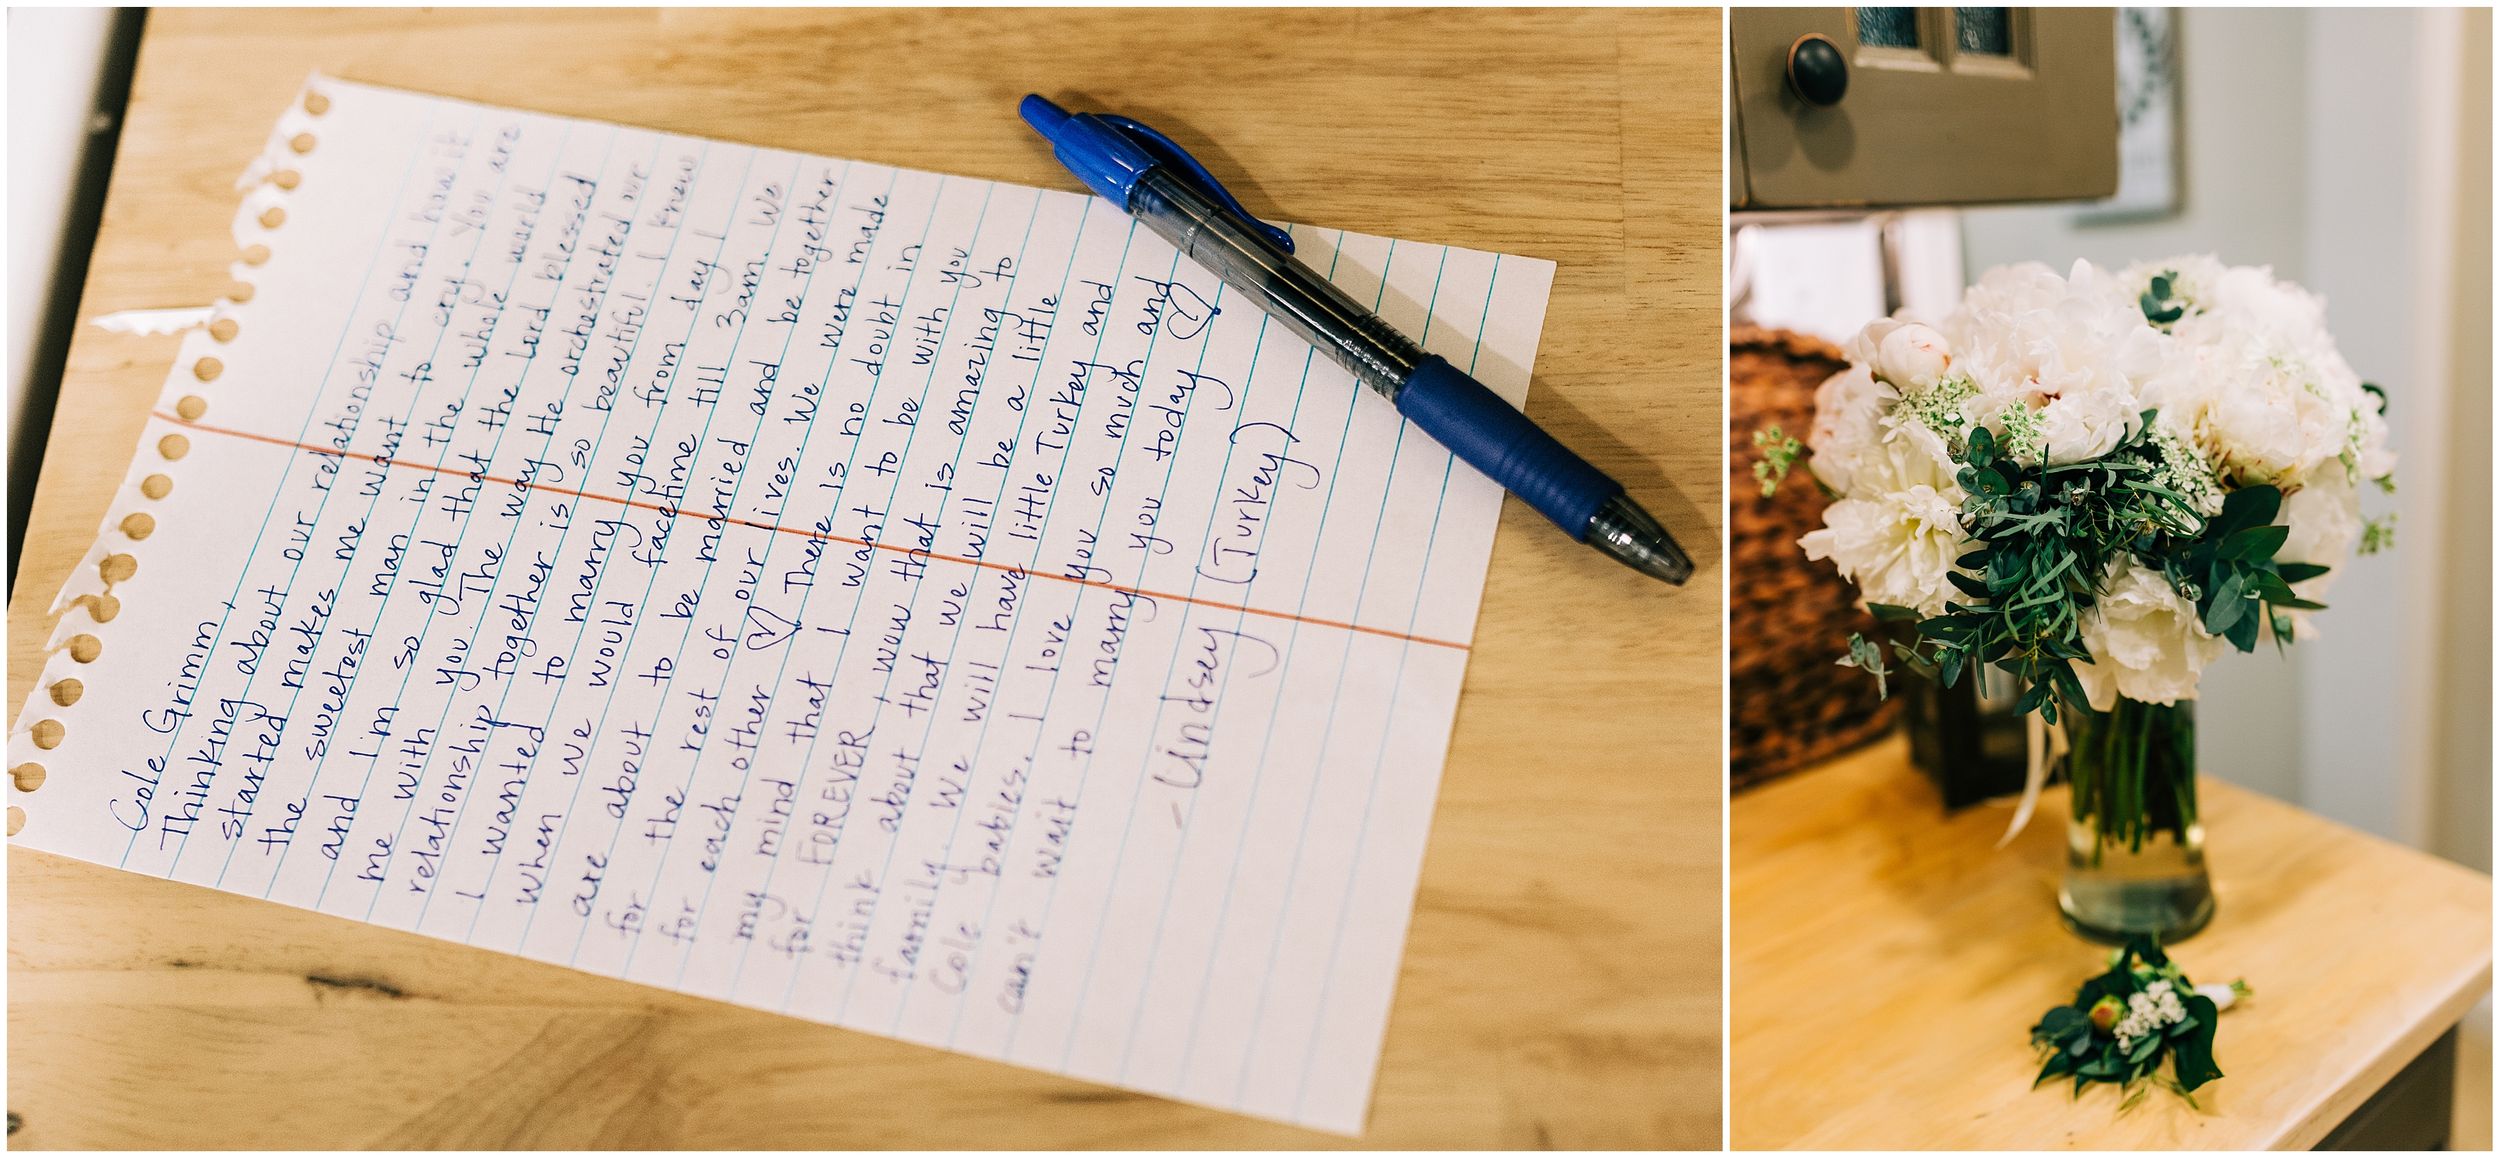 Cole Grimm,
Thinking about our relationship and how it
started makes me want to cry. You are
the sweetest man in the whole world
and I'm so glad that the Lord blessed
me with you. The way He orchestrated our
relationship together is so beautiful. I knew
I wanted to marry you from day 1
when we would facetime till 3am. We
are about to be married and be together
for the rest of our lives. We were made
for each other ♡ There is no doubt in
my mind that I want to be with you
for FOREVER, wow that is amazing to
think about that we will be a little
family. We will have little Turkey and
Cole babies. I love you so much and
can't wait to marry you today ♡
- Lindsey (Turkey)